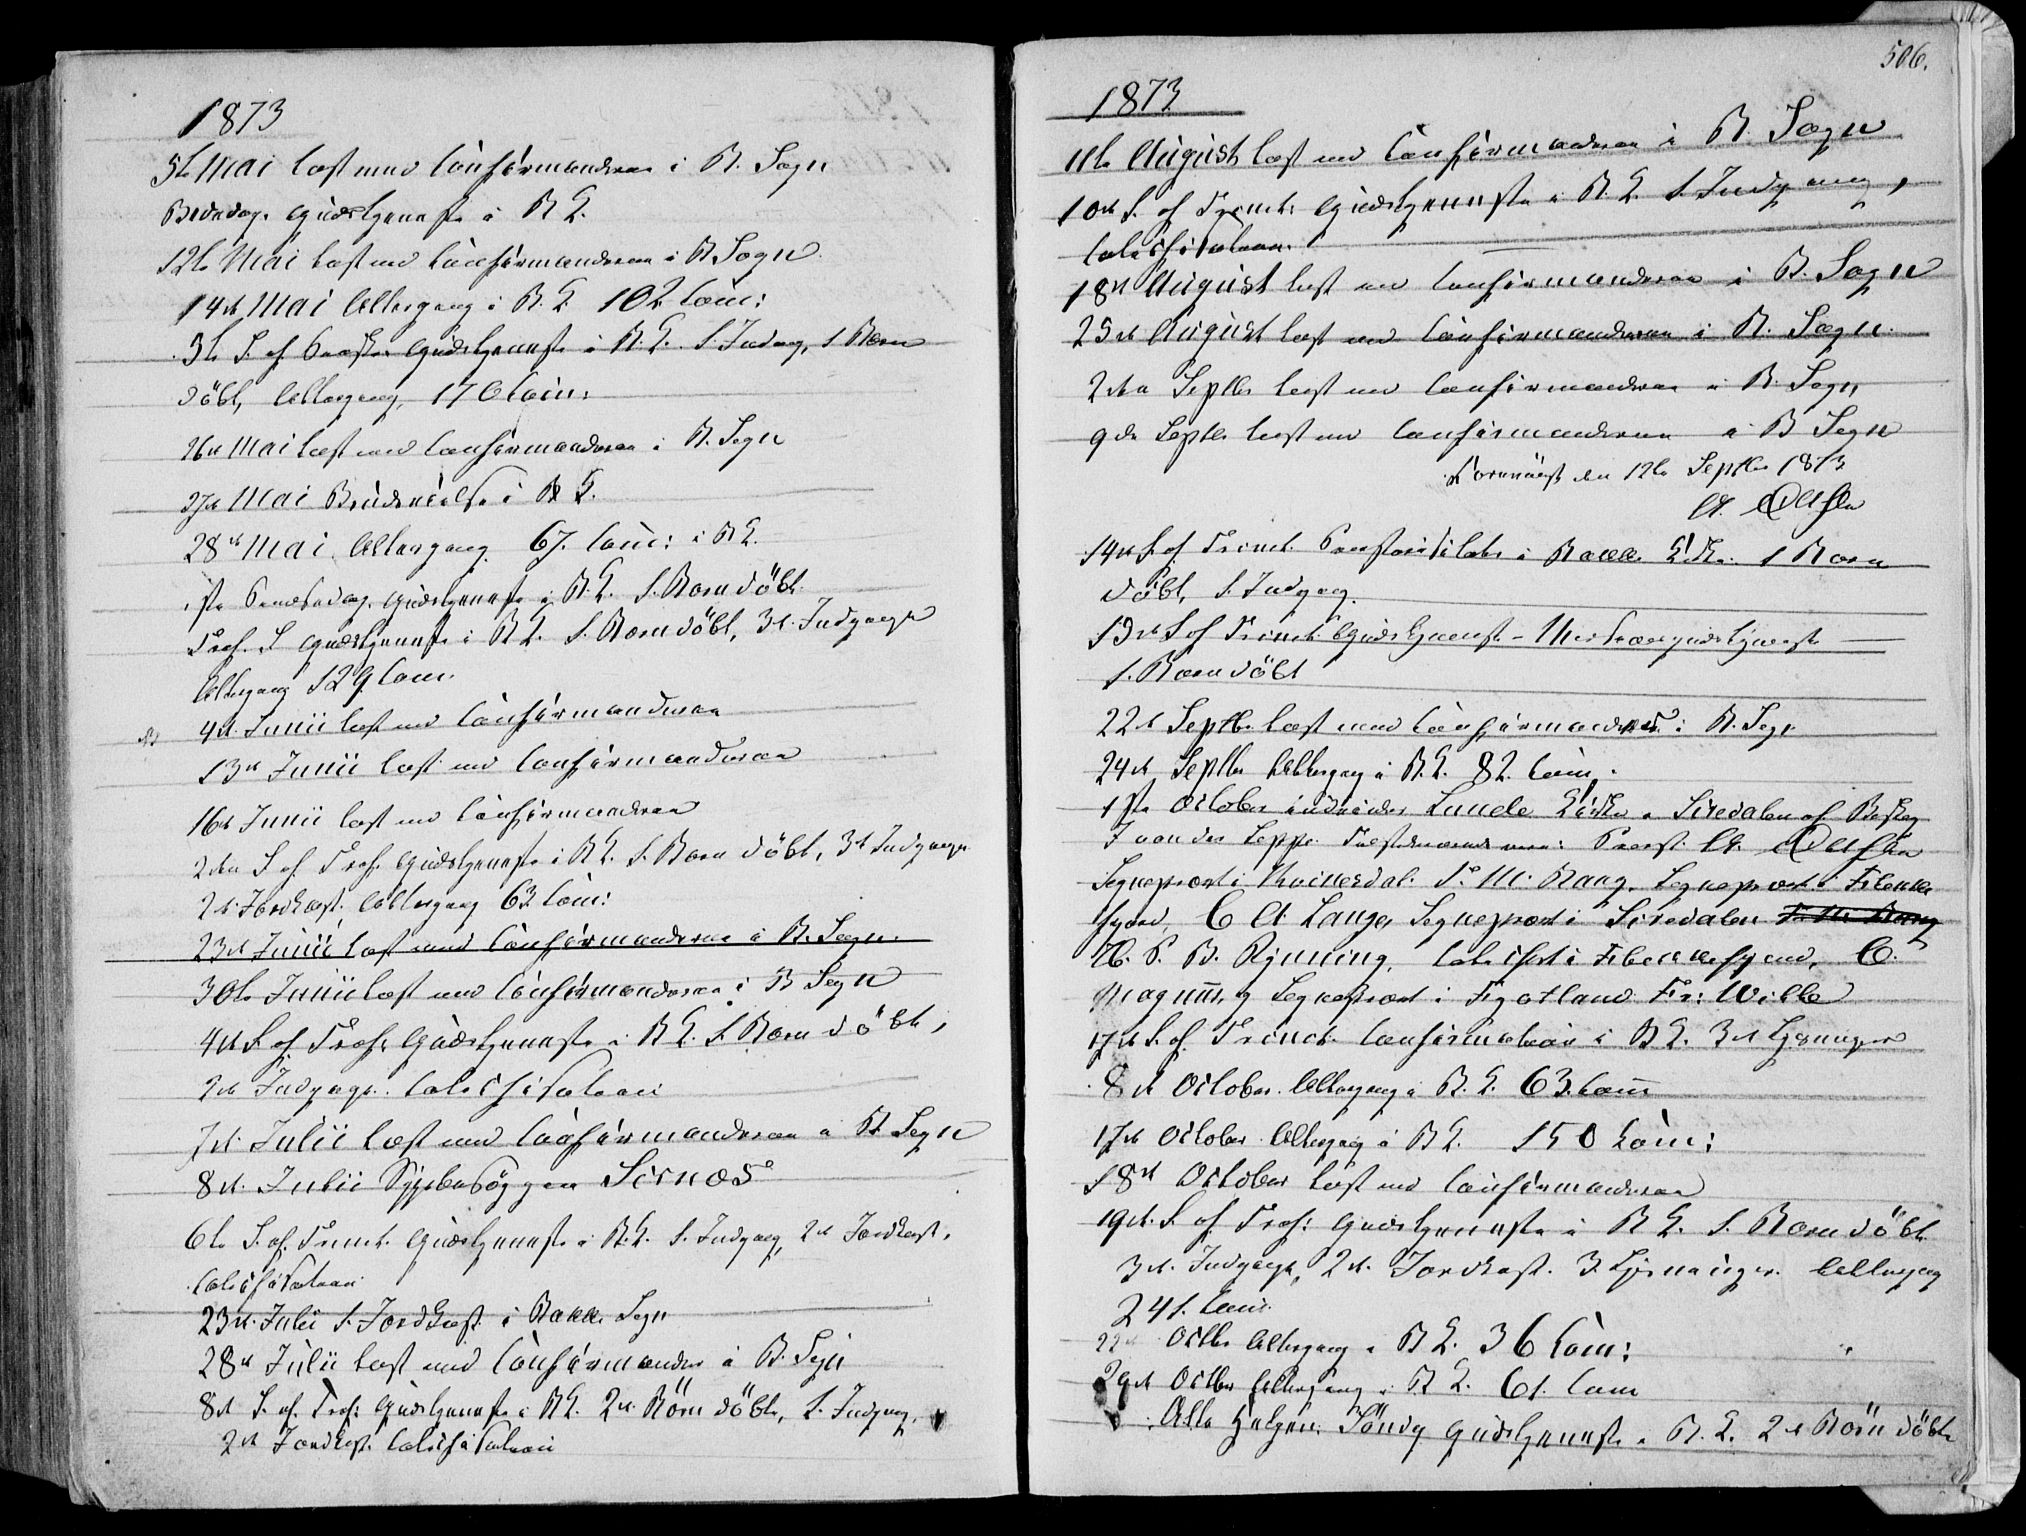 1873
5te Mai læst med Confirmanderne i B. Sogn
Bededag. Gudstjeneste i B K.
12te Mai læst med Confirmanderne i B Sogn
14de Mai Altergang i B. K 102 Com:
5te S. ef Paaske Gudstjeneste i B. K. 1. Indg, 1 Barn
döbt, Altergang, 170 Com:
26de Mai læst med Confirmanderne i B. Sogn
27de Mai Brudevielse i B K.
28de Mai Altergang 67. Com: i B K.
1ste Pindsedag. Gudstjeneste i B. K. 1. Barn döbt.
Tref. S Gudstjeneste i B K. 1. Barn döbt, 3de Indgange
Altergang 129 Com.
4de Junii læst med Confirmanderne
13de Junii læst med Confirmanderne
16de Junii læst med Confirmanderne
2den S. ef Tref. Gudstjeneste i B K. 1. Barn döbt, 3de Indgange
2de Jordkast. Altergang 63 Com:
23de Junii læst med Confirmanderne i B. Sogn.
30te Junii læst med Confirmanderne i B Sogn
4de S. ef Tref: Gudstjeneste i B K. 1. Barn döbt,
2de Indgange. Catechisation
7de Julii læst med Confirmanderne i B Sogn
8de Julii Sygebesög paa Sirnæs
6te S. ef. Trinit. Gudstjeneste i B. K. 1. Indgang, 2de Jordkast.
Catechisation
23de Julii 1. Jordkast i Bakke Sogn
28de Julii læst med Confirmander i B. Sogn
8de S. ef. Tref: Gudstjeneste i B K. 2de Börn döbte, 1. Indgang,
2de Jordkast. Catechisation
506.
1873
11te August læst med Confirmanderne i B. Sogn
10de S. ef Trinit: Gudstjeneste i B. K. 1. Indgang,
Catechisation.
18de August læst med Confirmanderne i B. Sogn
25de August læst med Confirmanderne i B. Sogn.
2den Septbr læst med Confirmanderne i B. Sogn
9de Septbr læst med Confirmanderne i B Sogn
den 12te Septbr 1873
14de S. ef Trinit. i Bakke Kirke. 1 Barn
döbt, 1. Indgang.
15de S. ef Trinit. Gudstjeneste -
1. Barn döbt
22de Septbr. læst med Confirmanderne i B. Sogn
24de Septbr Altergang i B. K. 82. Com:
1ste October indvies Lunde Kirke i Siredalen af Biskop
J von der Lippe. Provst A.
Sogneprest i Kvinesdal. S. M. Bang, Sogneprest i Flekke-
fjord, C A Lange, Sogneprest i Siredalen
H. P. B. Rynning, Catechet i Flekkefjord, C.
Magnus, og Sogneprest i Fjotland Fr: Wille
17de S. ef Trinit. Confirmation i B K. 3de Lysninger
8de October. Altergang i B. K. 63. Com
17de October Altergang i B K. 150 Com:
18de October læst med Confirmanderne
19de. S. ef Tref: Gudstjeneste i B K. 1. Barn döbt
3de. Indgange, 2de. Jordkast. 3 Lysninger. Altergang
241. Com:
22de Octbr Altergang i B K. 36 Com:
29de Octbr Altergang i B K. 61. Com
Alle Helgens Söndag Gudstjeneste i B. K. 2de Börn döbte